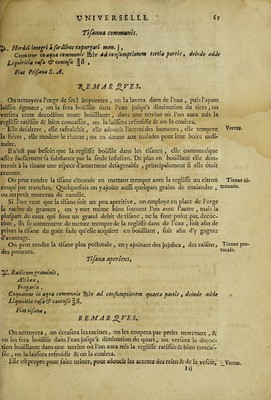 UNIVERSELLE. 67
Tisanna communis.
℞. Hordei integri à sordibus expurgati man. j,
Coquatur in aquæ ad consumptionem tertia partis, deinde adde
Liquiritia rasa & contusa ℥ß,
Fiat Ptisana S. A.
REMARQVES.
On nettoyera l'orge de ses impuretez, on la lavera dans de l'eau, puis l'ayant
laissée égouter, on la fera bouillir dans l'eau jusqu'à diminution du tiers, on
versera cette decoction toute bouillante, dans une terrine où l'on aura mis la
reglisse ratissée & bien concassée, on la laissera refroidir & on la coulera.
Elle desaltere, elle rafraîchit, elle adoucit les acretez humeurs, elle tempere
la fiévre, elle modere le rhume; on en donne aux malades pour leur boire ordi-
naire.
Vertus.
Il n'est pas besoin que la reglisse bouille dans les tisanes, elle communique
assez facilement sa substance par la seule infusion. De plus en bouillant elle don-
neroit à la tisane une espece d'amertume desagreable, principalement si elle étoit
recente.
On peut rendre la tisane citronée en mettant tremper avec la reglisse un citron
coupé par tranches. Quelquefois on y ajoute aussi quelques grains de coriandre,
ou un petit morceau de canelle.
Tisane ci-
tronnée.
Si l'on veut que la tisane soit un peu aperitive, on employe en place de l'orge
la racine de gramen, on y met même bien souvent l'un avec l'autre, mais la
plûpart de ceux qui font un grand debit de tisane, ne la font point par decoc-
tion, ils se contentent de mettre tremper de la reglisse dans de l'eau, soit afin de
priver la tisane du goût fade qu'elle acquiert en bouillant, soit afin d'y gagner
d'avantage.
On peut rendre la tisane plus pectorale, en y ajoutant des jujubes, des raisins,
des pommes.
Tisane pec-
torale.
Tisana aperiens,
℞. Radicum graminis,
Althææ,
Fragariæ,
Coquantur in aqua communis ad consumptionem quartæ partis, deinde adde
Liquiritia rasa & contusa ℥ß.
Fiat tisana,
REMARQVES.
On nettoyera, on écrasera les racines, on les coupera par petits morceaux, &
on les fera bouillir dans l'eau jusqu'à diminution du quart, on versera la decoc-
tion bouillante dans une terrine où l'on aura mis la reglisse ratissée & bien concas-
sée, on la laissera refroidir & on la coulera.
Elle est propre pour faire uriner, pour adoucir les acretez des reins & de la vessie,
Vertus.
I ij